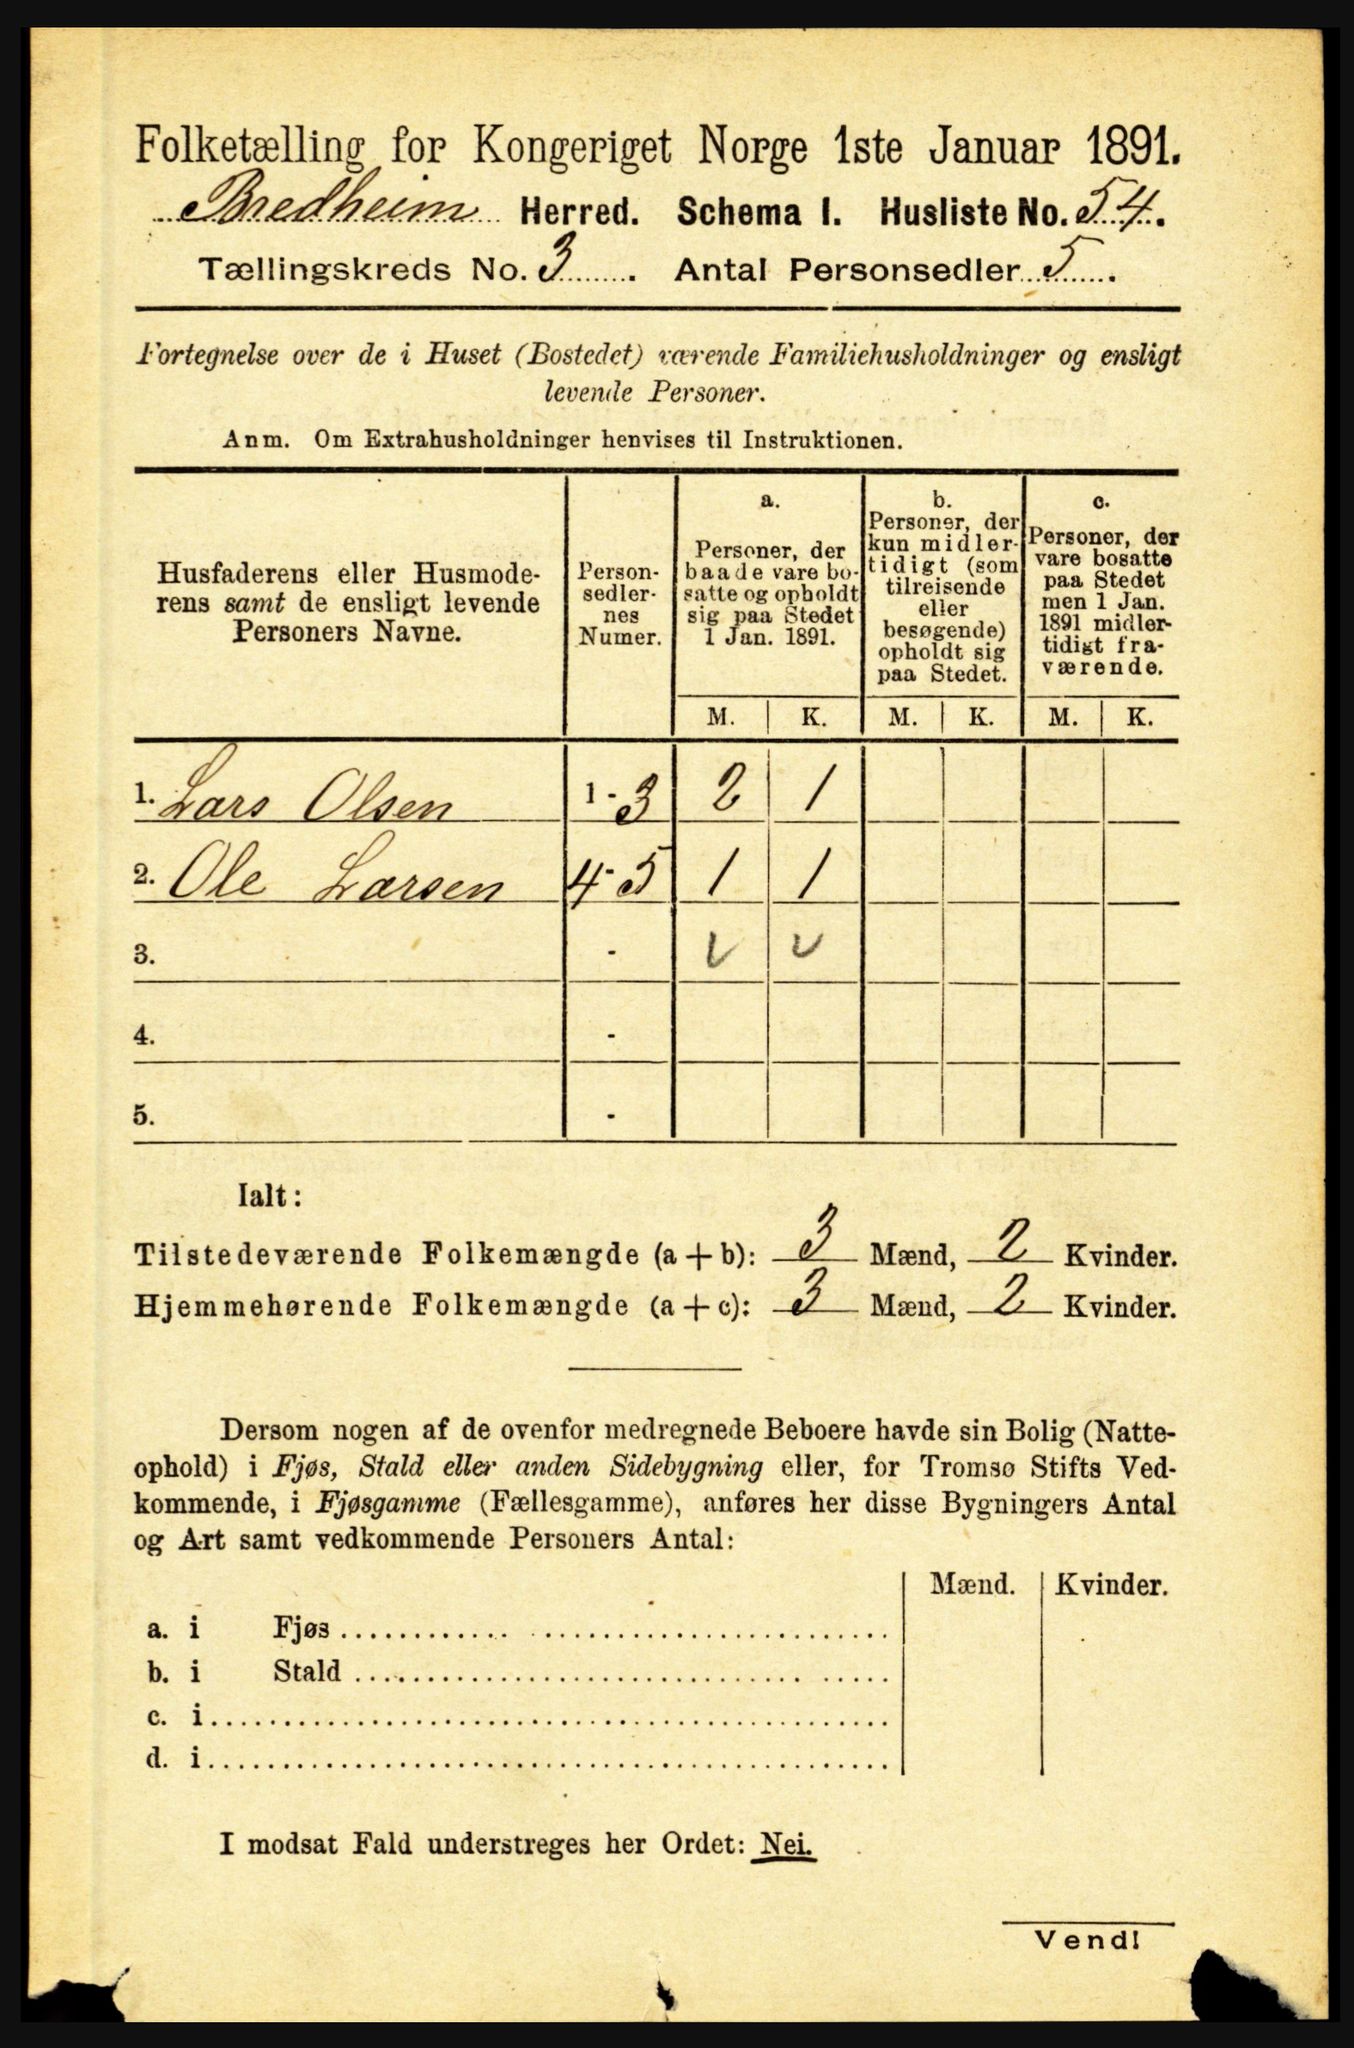 Folketælling for Kongeriget Norge 1ste Januar 1891.
Bredheim Herred. Schema I. Husliste No. 54.
Tællingskreds No. 3. Antal Personsedler 5.
Fortegnelse over de i Huset (Bostedet) værende Familiehusholdninger og ensligt
levende Personer.
Anm. Om Extrahusholdninger henvises til Instruktionen.
Husfaderens eller Husmode-
rens samt de ensligt levende
Personers Navne.
Person-
sedler-
nes
Numer.
a.
Personer, der
baade vare bo-
satte og opholdt
sig paa Stedet
1 Jan. 1891.
b.
Personer, der
kun midler-
tidigt (som
tilreisende
eller
besøgende)
opholdt sig
paa Stedet.
c.
Personer, der
vare bosatte
paa Stedet
men 1 Jan.
1891 midler-
tidigt fra-
værende.
M. K. M. K. M. K.
1. Lars Olsen 1 - 3 2 1
2. Ole Larsen 4 - 5 1 1
3. -
4. -
5. -
Ialt:
Tilstedeværende Folkemængde (a + b): 3 Mænd, 2 Kvinder.
Hjemmehørende Folkemængde (a + c): 3 Mænd, 2 Kvinder.
Dersom nogen af de ovenfor medregnede Beboere havde sin Bolig (Natte-
ophold) i Fjøs, Stald eller anden Sidebygning eller, for Tromsø Stifts Ved-
kommende, i Fjøsgamme (Fællesgamme), anføres her disse Bygningers Antal
og Art samt vedkommende Personers Antal:
Mænd. Kvinder.
a. i Fjøs
b. i Stald
c. i
d. i
I modsat Fald understreges her Ordet: Nei.
Vend!